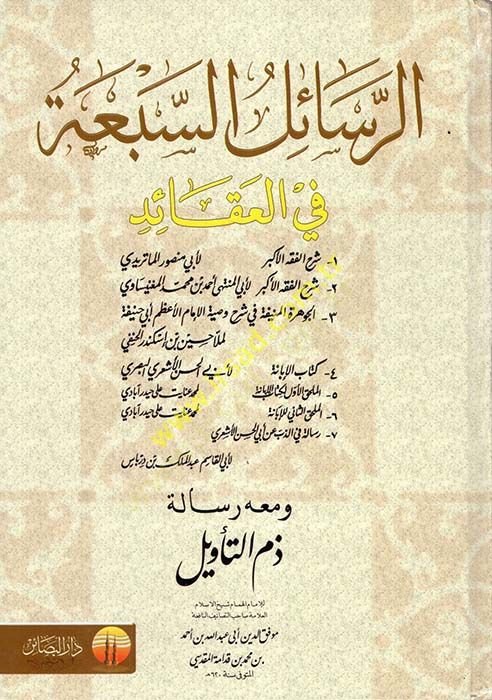 الرسائل السبعة
في العقائد
١- شرح الفقه الاكبر لأبي منصور الماتريدي
٢- شرح الفقه الأكبر لأبي المنتهى أحمد بن محمد المغنيساوي
٣- الجوهرة المنيفة في شرح وصية الإمام الأعظم أبي حنيفة
لملا حسين بن إسكندر الحنفي
٤- كتاب الإبانة لأبي الحسن الأشعري البصري
٥- الملحق الأول لكتاب الإبانة لمحمد عنايت علي حيدرآبادي
٦- الملحق الثاني للإبانة لمحمد عنايت علي حيدرآبادي
٧- رسالة في الذب عن أبي الحسن الأشعري
لأبي القاسم عبد الملك بن درباس
ومعه رسالة
ذم التأويل
للإمام الهمام شيخ الاسلام
العلامة صاحب التصانيف النافعة
موفق الدين أبي عبد الله بن أحمد
بن محمد بن قدامة المقدسي
المتوفى سنة ٦٢٠هـ
دار البصائر